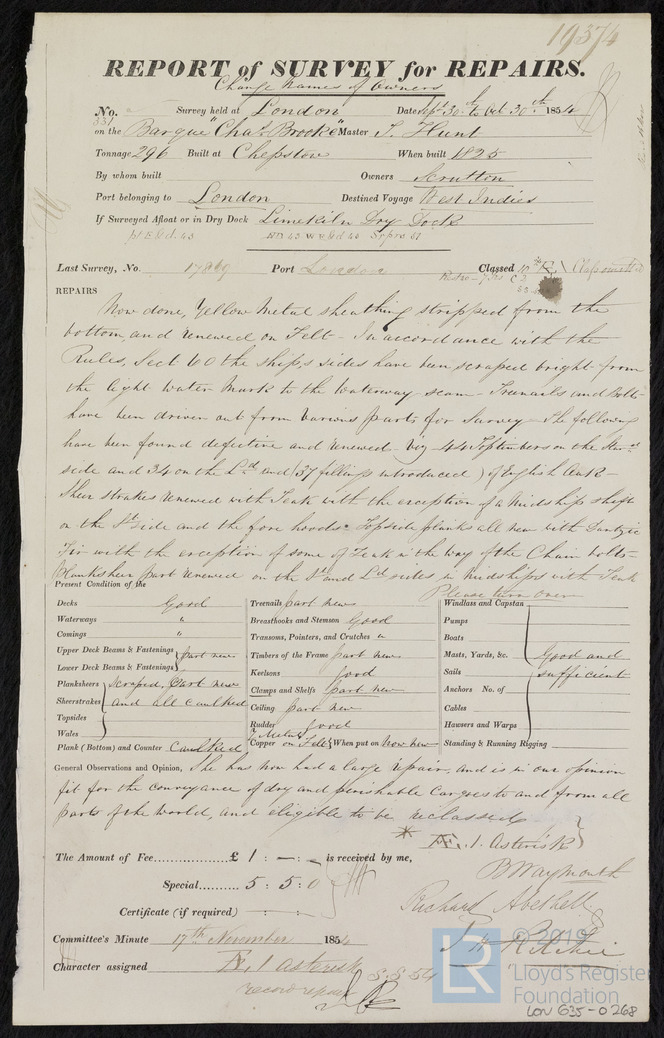 19374
REPORT of SURVEY for REPAIRS.
Change Names of Owners
No. Survey held at London Date Sept 30th to Oct 30th 1854
331
on the Barque "Chas Brooke" Master J. Hunt
Tonnage 296 Built at Chepstow When built 1825
By whom built Owners Scrutton
Port belonging to London Destined Voyage West Indies
If Surveyed Afloat or in Dry Dock Limekiln Dry Dock
Last Survey, No. 17869 Port London Classed 10
REPAIRS
Now done, Yellow Metal sheathing stripped from the
bottom, and renewed on Felt - In accordance with the
Rules, Sect 60 the ship,s sides have been scraped bright from
the light Water Mark to the Waterway seam - Trenails and Bolts
have been driven out from Various parts for Survey - The following
have been found defective and renewed - Viz 44 Toptimbers on the Starbd
side and 34 on the Ld and (37 fillings introduced) of English Oak -
Sheer strakes renewed with Teak with the exception of a Midship shift
on the St side and the fore hoods - Topside planks all new with Dantzic
Fir with the exception of some of Teak in the way of the Chain bolts -
Planksheer part renewed on the St and Ld sides in Midships with Teak
Please turn over
Present Condition of the
Decks Good
Waterways "
Comings "
Upper Deck Beams & Fastenings part new
Lower Deck Beams & Fastenings
Planksheers scraped, Part new
Sheerstrakes and all caulked
Topsides
Wales
Plank (Bottom) and Counter Caulked
Treenails part new
Breasthooks and Stemson Good
Transoms, Pointers, and Crutches "
Timbers of the Frame part new
Keelsons good
Clamps and Shelfs part new
Ceiling part new
Rudder good
Y Metal
Copper on Felt When put on now new
Windlass and Capstan
Pumps
Boats
Masts, Yards, &c. Good and
Sails sufficient
Anchors No. of
Cables
Hawsers and Warps
Standing & Running Rigging
General Observations and Opinion, She has now had a large repair, and is in our opinion
fit for the conveyance of dry and perishable Cargoes to and from all
parts of the world, and eligible to be reclassed
* Æ. 1. Asterisk
The Amount of Fee......£ 1 : — : — is received by me,
B Waymouth
Special......... 5 : 5 : 0
Richard
Certificate (if required) — : — : —
Committee's Minute 17th November 1854
Character assigned Æ. 1 asterisk S.S 54
record repairs
© 2019
LR
Lloyd's Register
Foundation
LON 635-0268